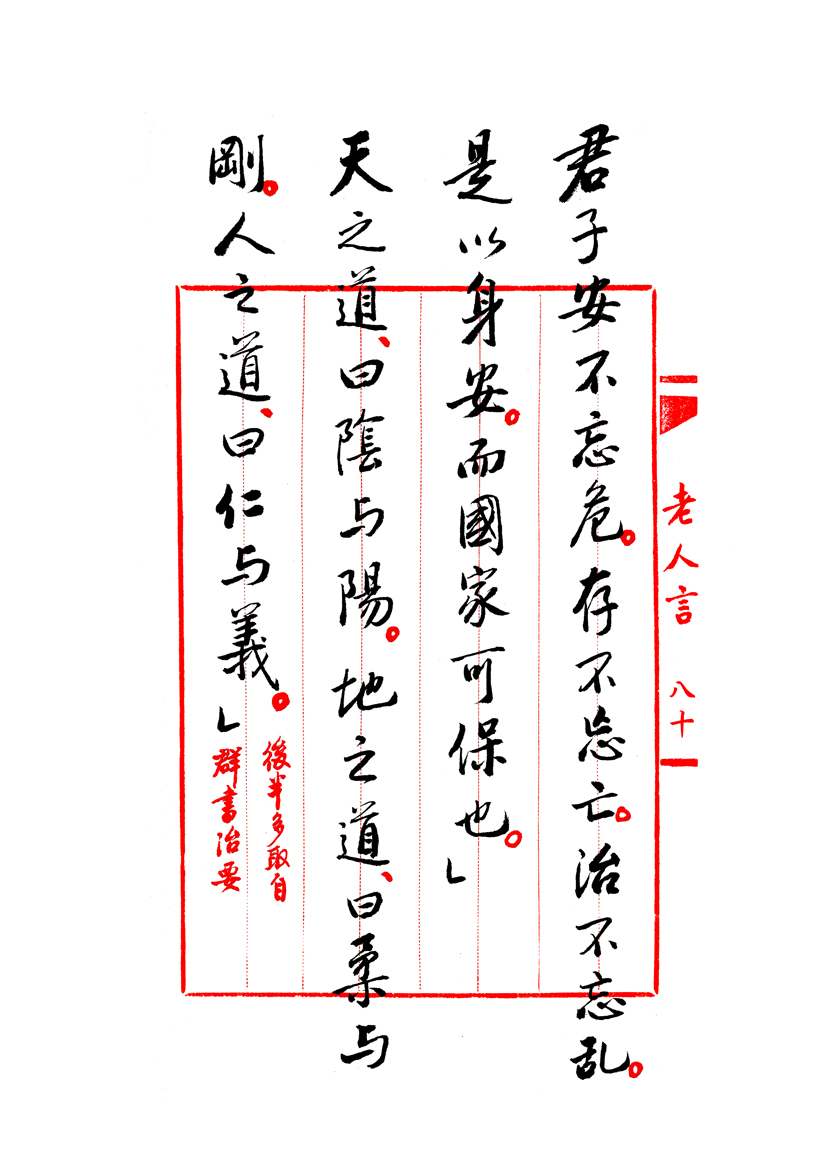 君子安不忘危。存不忘亡。治不忘乱。
是以身安。而國家可保也。」
天之道、曰陰与陽。地之道、曰柔与
剛。人之道、曰仁与義。」
後半多取自
群書治要
老人言 八十